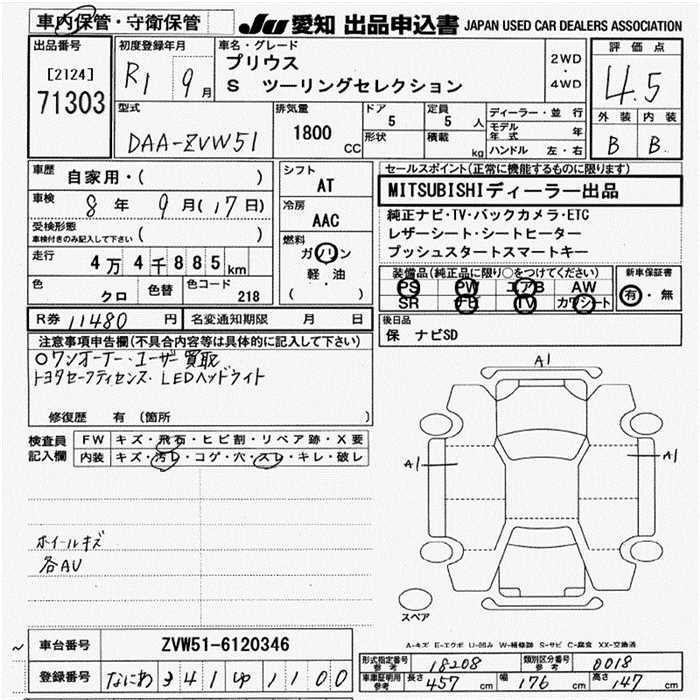 車内保管・守衛保管
JU 愛知 出品申込書 JAPAN USED CAR DEALERS ASSOCIATION
出品番号
[2124]
71303
初度登録年月
R1 9月
車名・グレード
プリウス
S ツーリングセレクション
2WD
・
4WD
評価点
4.5
外装 内装
B B
型式
DAA-ZVW51
排気量
1800 CC
ドア
5
形状
定員
5 人
積載
kg
ディーラー・並 行
モデル年式 年
ハンドル 左・右
車歴 自家用・( )
車検 8年 9月(17日)
受検形態
車検付きのみ記入して下さい ( )
走行 4万4千885km
色 クロ 色替 色コード 218
シフト
AT
冷房
AAC
燃料
ガソリン
軽・油
( )
セールスポイント(正常に機能するものに限ります)
MITSUBISHIディーラー出品
純正ナビ・TV・バックカメラ・ETC
レザーシート・シートヒーター
プッシュスタートスマートキー
装備品(純正品に限り○をつけてください)
PS PW エアB AW
SR ナビ TV カワシート
新車保証書
有・無
R券 11480 円 名変通知期限 月 日
後日品
保 ナビSD
注意事項申告欄(不具合内容等は具体的に記入して下さい)
○ワンオーナー・ユーザー買取
トヨタセーフティセンス・LEDヘッドライト
修復歴 有 (箇所 )
検査員
記入欄
FW キズ・飛石・ヒビ割・リペア跡・X要
内装 キズ・汚レ・コゲ・穴・スレ・キレ・破レ
ホイールキズ
各AU
A1
A1
A1
スペア
A-キズ E-エクボ U-凹み W-補修跡 S-サビ C-腐食 XX-交換済
車台番号 ZVW51-6120346
登録番号 なにわ 341 ゆ 1100
型式指定番号
参考
18208
類別区分番号
参考
0018
車庫証明用
参考
長さ 457 cm 幅 176 cm 高さ 147 cm